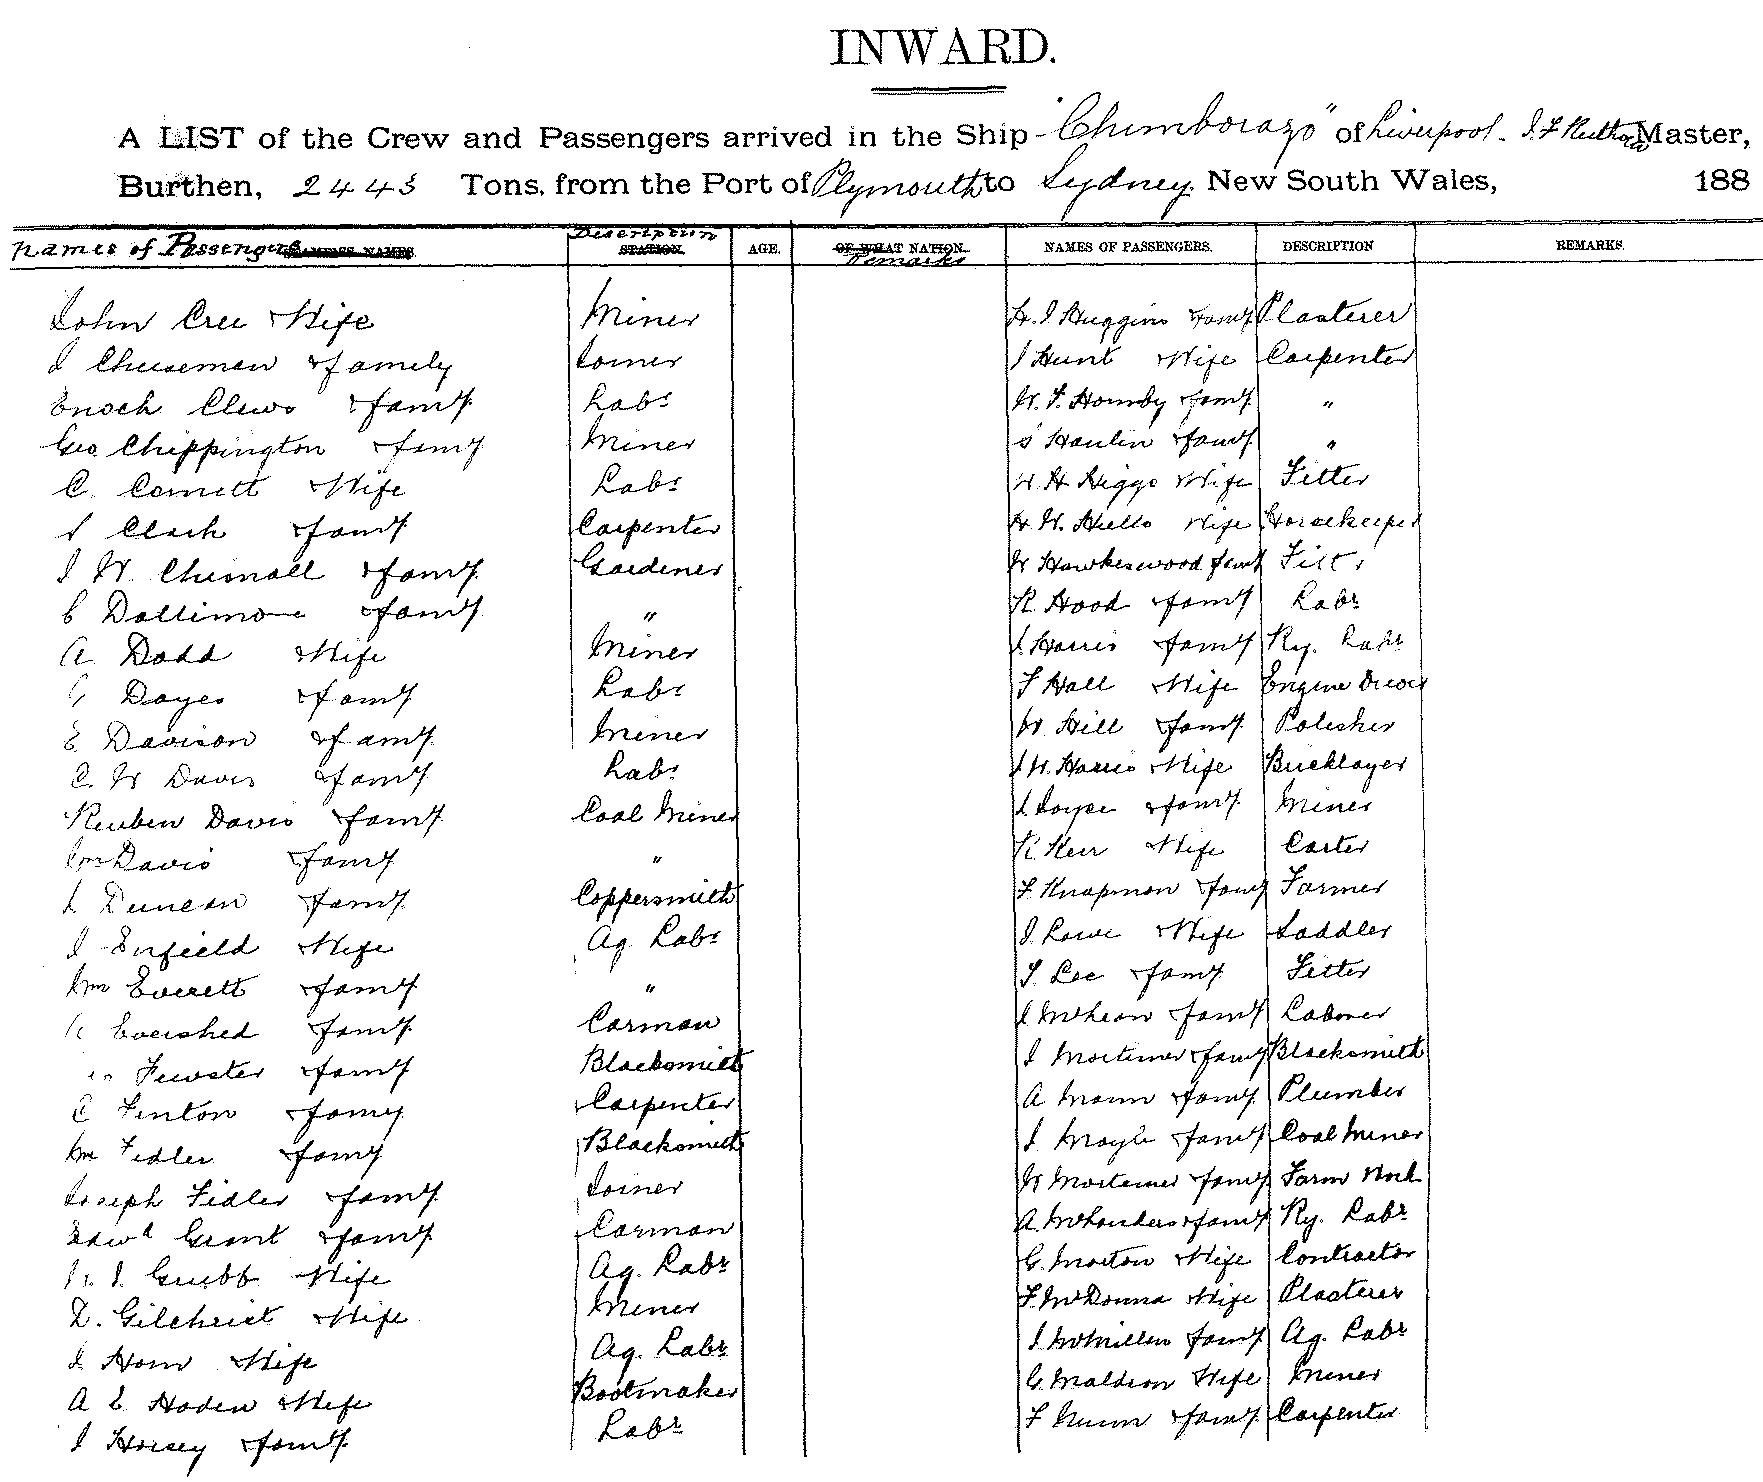 INWARD.
A LIST of the Crew and Passengers arrived in the Ship "Chimborazo" of Liverpool - J. F. Master,
Burthen, 2443 Tons, from the Port of Plymouth to Sydney. New South Wales, 188
Names of Passengers Description STATION. AGE. OF WHAT NATION. Remarks NAMES OF PASSENGERS. DESCRIPTION REMARKS.
John Cree & Wife Miner
J Cheeseman & family Joiner
Enoch Clews & famy. Labr
Geo. Chippington & famy Miner
C. Cornett & Wife Labr
J Clark & famy. Carpenter
J W. Chisnall & famy. Gardener
C Dollimore & famy. "
A. Dodd & Wife Miner
G Dayes & famy Labr
E Davison & famy. Miner
C. W Davis & famy. Labr
Reuben Davis & famy. Coal Miner
Wm Davis & famy. "
J Duncan & famy. Coppersmith
J Enfield & Wife Ag Labr
Wm Everett & famy. "
Evershed & famy. Carman
Fewster & famy. Blacksmith
C Fenton & famy. Carpenter
Wm Fidler & famy Blacksmith
Joseph Fidler & famy. Joiner
Edwd Grant & famy. Carman
J. Grubb & Wife Ag. Labr
D. Gilchrist & Wife Miner
J. Horn & Wife Ag. Labr
A E Hoden & Wife Bootmaker
J Horsey & famy. Labr
H. J Huggins & famy Plasterer
J Hunt & Wife Carpenter
W. F. Hornby & famy. "
S Hanlin & famy. "
W H Higgs & Wife Fitter
H. W. Hells & Wife Horsekeeper
W Hawkeswood & famy Fitter
R. Hood & famy Labr
J Harris & famy. Ry. Labr
F Hall & Wife Engine Driver
W. Hill & famy. Polisher
J W. Harris & Wife Bricklayer
J. Joyce & famy. Miner
R. Kerr & Wife Carter
F Knapman & famy Farmer
J. Lowe & Wife Saddler
F. Lee & famy. Fitter
J McKean & famy. Labourer
J Mortimer & famy Blacksmith
A Mann & famy. Plumber
J Moyle & famy. Coal Miner
W Mortimer & famy. Farm Work
A & famy. Ry. Labr
G. Morton & Wife Contractor
F. McDonna & Wife Plasterer
J McMillen & famy. Ag. Labr
G. Maldson & Wife Miner
F Nunn & famy. Carpenter